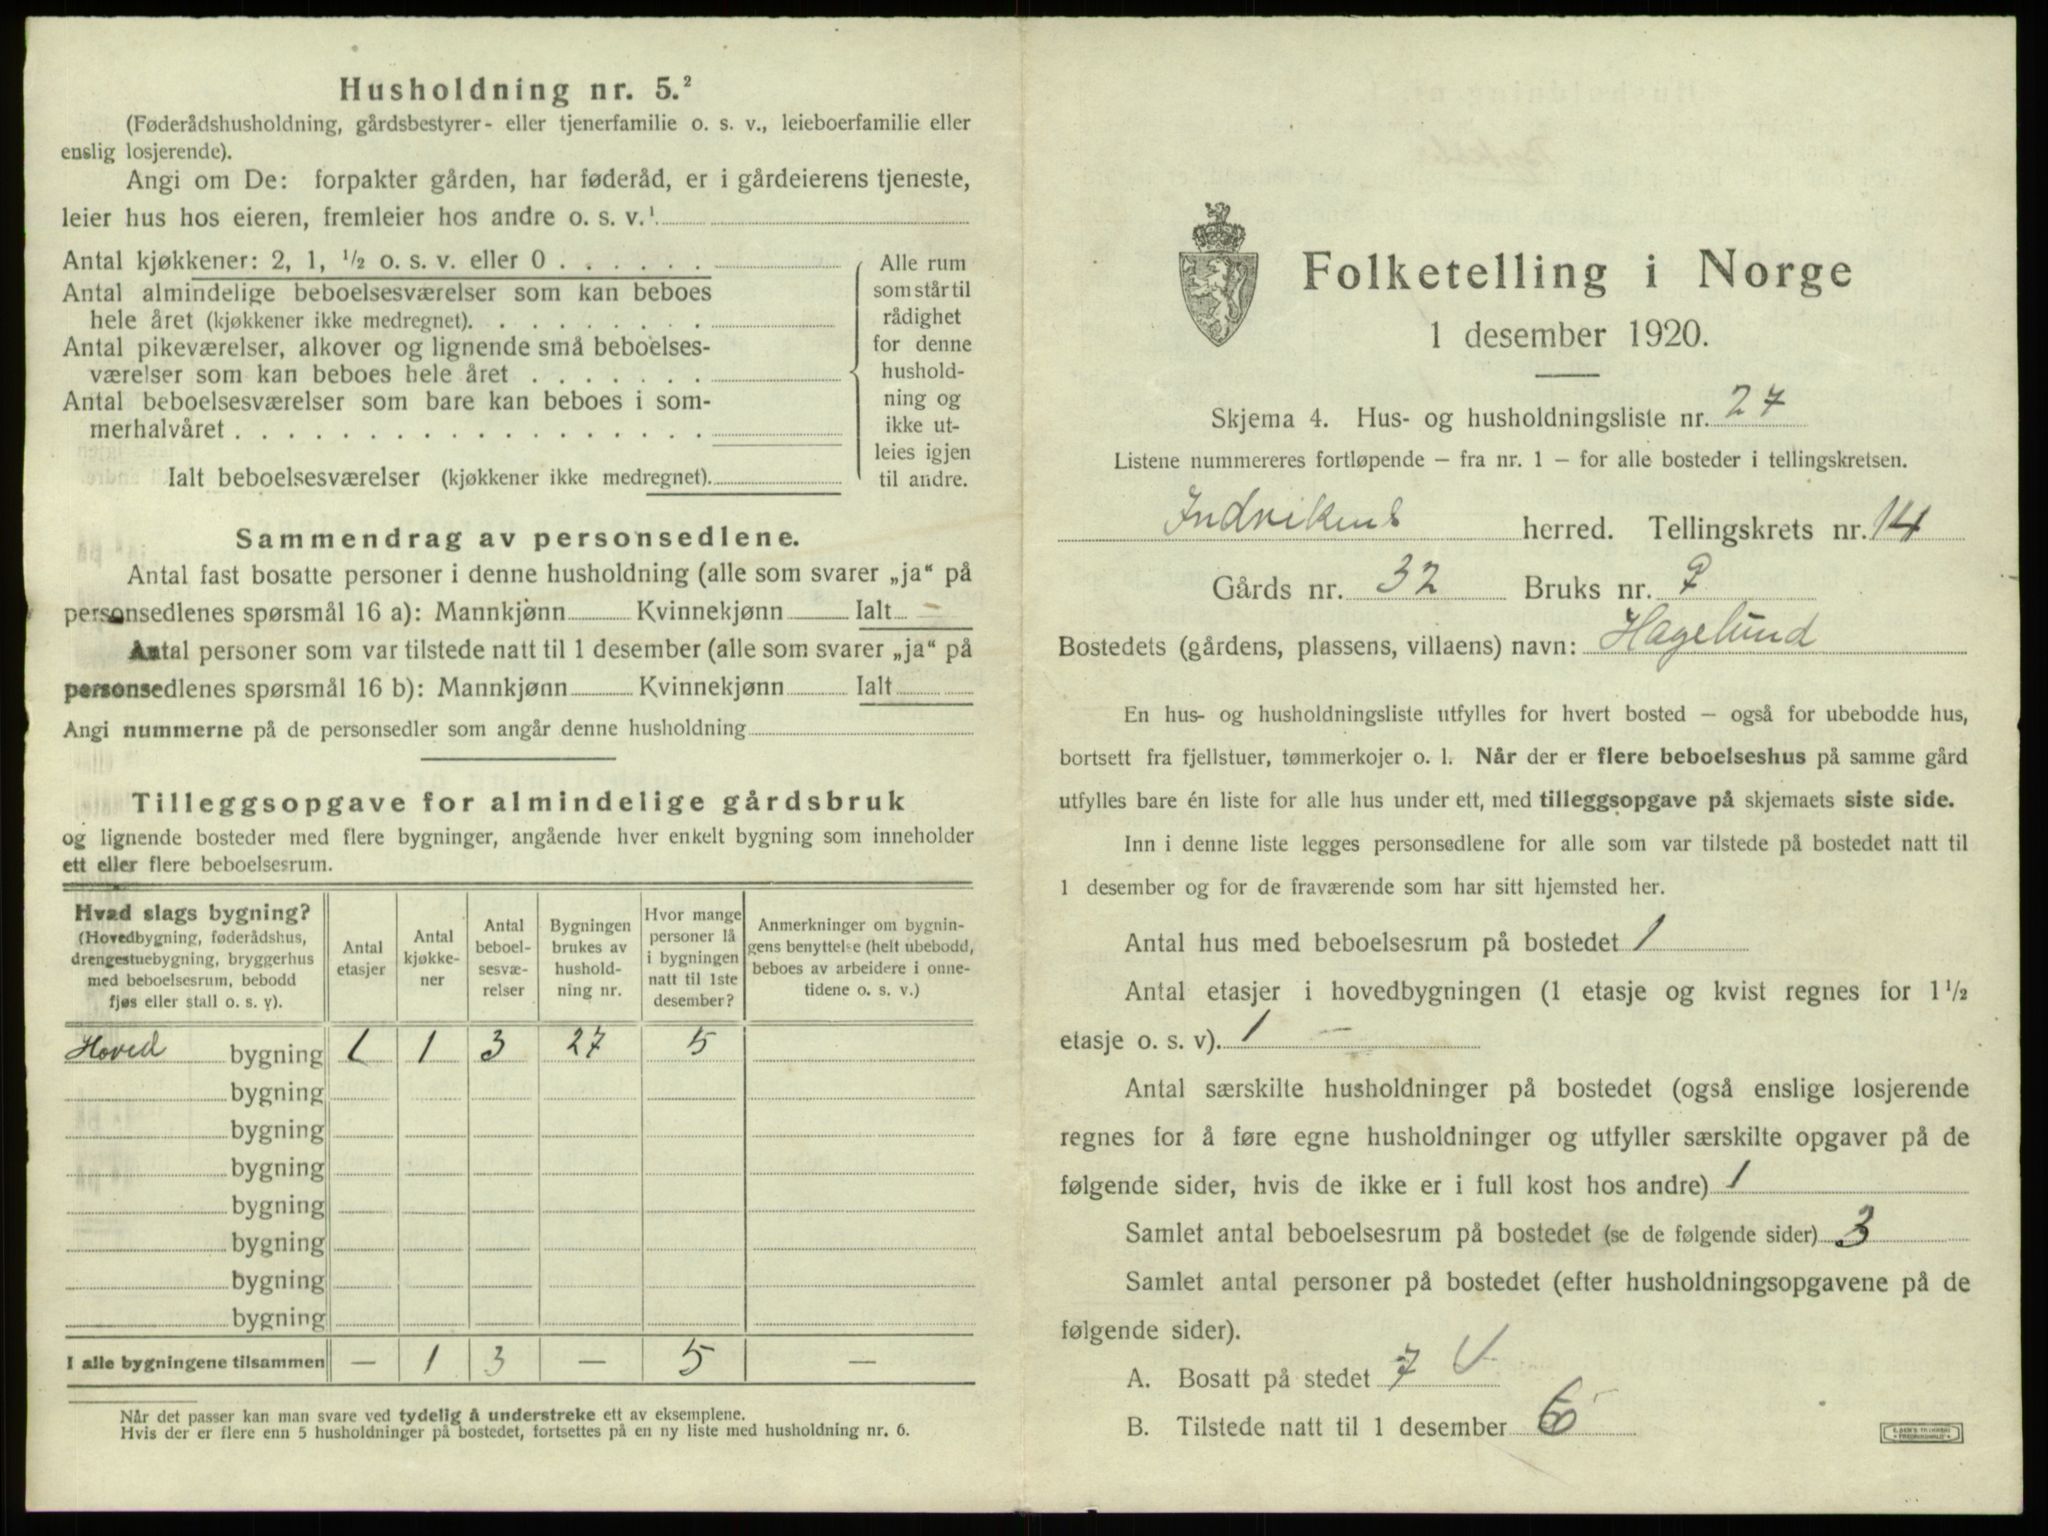 Husholdning nr. 5.²
(Føderådshusholdning, gårdsbestyrer- eller tjenerfamilie o. s. v., leieboerfamilie eller
enslig losjerende).
Angi om De: forpakter gården, har føderåd, er i gårdeierens tjeneste,
leier hus hos eieren, fremleier hos andre o. s. v.¹
Antal kjøkkener: 2, 1, ¹/₂ o. s. v. eller 0 . . . . . .
Antal almindelige beboelsesværelser som kan beboes
hele året (kjøkkener ikke medregnet). . . . . . . . .
Antal pikeværelser, alkover og lignende små beboelses-
værelser som kan beboes hele året . . . . . . .
Antal beboelsesværelser som bare kan beboes i som-
merhalvåret . . . . . . . . . . . . . . . . . .
Ialt beboelsesværelser (kjøkkener ikke medregnet).
Alle rum
som står til
rådighet
for denne
hushold-
ning og
ikke ut-
leies igjen
til andre.
Sammendrag av personsedlene.
Antal fast bosatte personer i denne husholdning (alle som svarer „ja“ på
personsedlenes spørsmål 16 a): Mannkjønn Kvinnekjønn Ialt –
Antal personer som var tilstede natt til 1 desember (alle som svarer „ja“ på
personsedlenes spørsmål 16 b): Mannkjønn Kvinnekjønn Ialt
Angi nummerne på de personsedler som angår denne husholdning
Tilleggsopgave for almindelige gårdsbruk
og lignende bosteder med flere bygninger, angående hver enkelt bygning som inneholder
ett eller flere beboelsesrum.
Hvad slags bygning?
(Hovedbygning, føderådshus,
drengestuebygning, bryggerhus
med beboelsesrum, bebodd
fjøs eller stall o. s. v).
Antal
etasjer
Antal
kjøkke-
ner
Antal
beboel-
sesvæ-
relser
Bygningen
brukes av
hushold-
ning nr.
Hvor mange
personer lå
i bygningen
natt til 1ste
desember?
Anmerkninger om bygnin-
gens benyttelse (helt ubebodd,
beboes av arbeidere i onne-
tidene o. s. v.)
Hoved bygning 1 1 3 27 5
bygning
bygning
bygning
bygning
bygning
bygning
bygning
I alle bygningene tilsammen — 1 3 — 5 —
Når det passer kan man svare ved tydelig å understreke ett av eksemplene.
Hvis der er flere enn 5 husholdninger på bostedet, fortsettes på en ny liste med husholdning nr. 6.
Folketelling i Norge
1 desember 1920.
Skjema 4. Hus- og husholdningsliste nr. 27
Listene nummereres fortløpende – fra nr. 1 – for alle bosteder i tellingskretsen.
Indvikens herred. Tellingskrets nr. 14
Gårds nr. 32 Bruks nr. 9
Bostedets (gårdens, plassens, villaens) navn: Hagelund
En hus- og husholdningsliste utfylles for hvert bosted – også for ubebodde hus,
bortsett fra fjellstuer, tømmerkojer o. l. Når der er flere beboelseshus på samme gård
utfylles bare én liste for alle hus under ett, med tilleggsopgave på skjemaets siste side.
Inn i denne liste legges personsedlene for alle som var tilstede på bostedet natt til
1 desember og for de fraværende som har sitt hjemsted her.
Antal hus med beboelsesrum på bostedet 1
Antal etasjer i hovedbygningen (1 etasje og kvist regnes for 1 ¹/₂
etasje o. s. v). 1 –
Antal særskilte husholdninger på bostedet (også enslige losjerende
regnes for å føre egne husholdninger og utfyller særskilte opgaver på de
følgende sider, hvis de ikke er i full kost hos andre) 1
Samlet antal beboelsesrum på bostedet (se de følgende sider) 3
Samlet antal personer på bostedet (efter husholdningsopgavene på de
følgende sider).
A. Bosatt på stedet 7
B. Tilstede natt til 1 desember